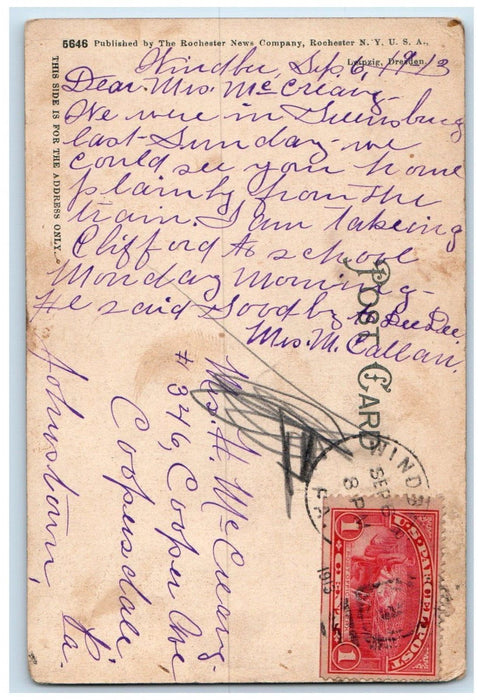 5646 Published by The Rochester News Company, Rochester N. Y. U. S. A.,
Leipzig, Dresden
THIS SIDE IS FOR THE ADDRESS ONLY.
Windber, Sep. 6, 1913
Dear Mrs. McCreary-
We were in Greensburg
last Sunday - we
could see you home
plainly from the
train. I am takeing
Clifford to school
Monday morning-
He said Goodby to Dee Dee
Mrs. M. Callan.
POST CARD
Mrs. H. McCreary
# 346, Cooper Ave
Coopersdale
Johnstown, Pa.
WINDB
SEP 6
8 P
1913
PA
U.S. PARCEL POST
1
1